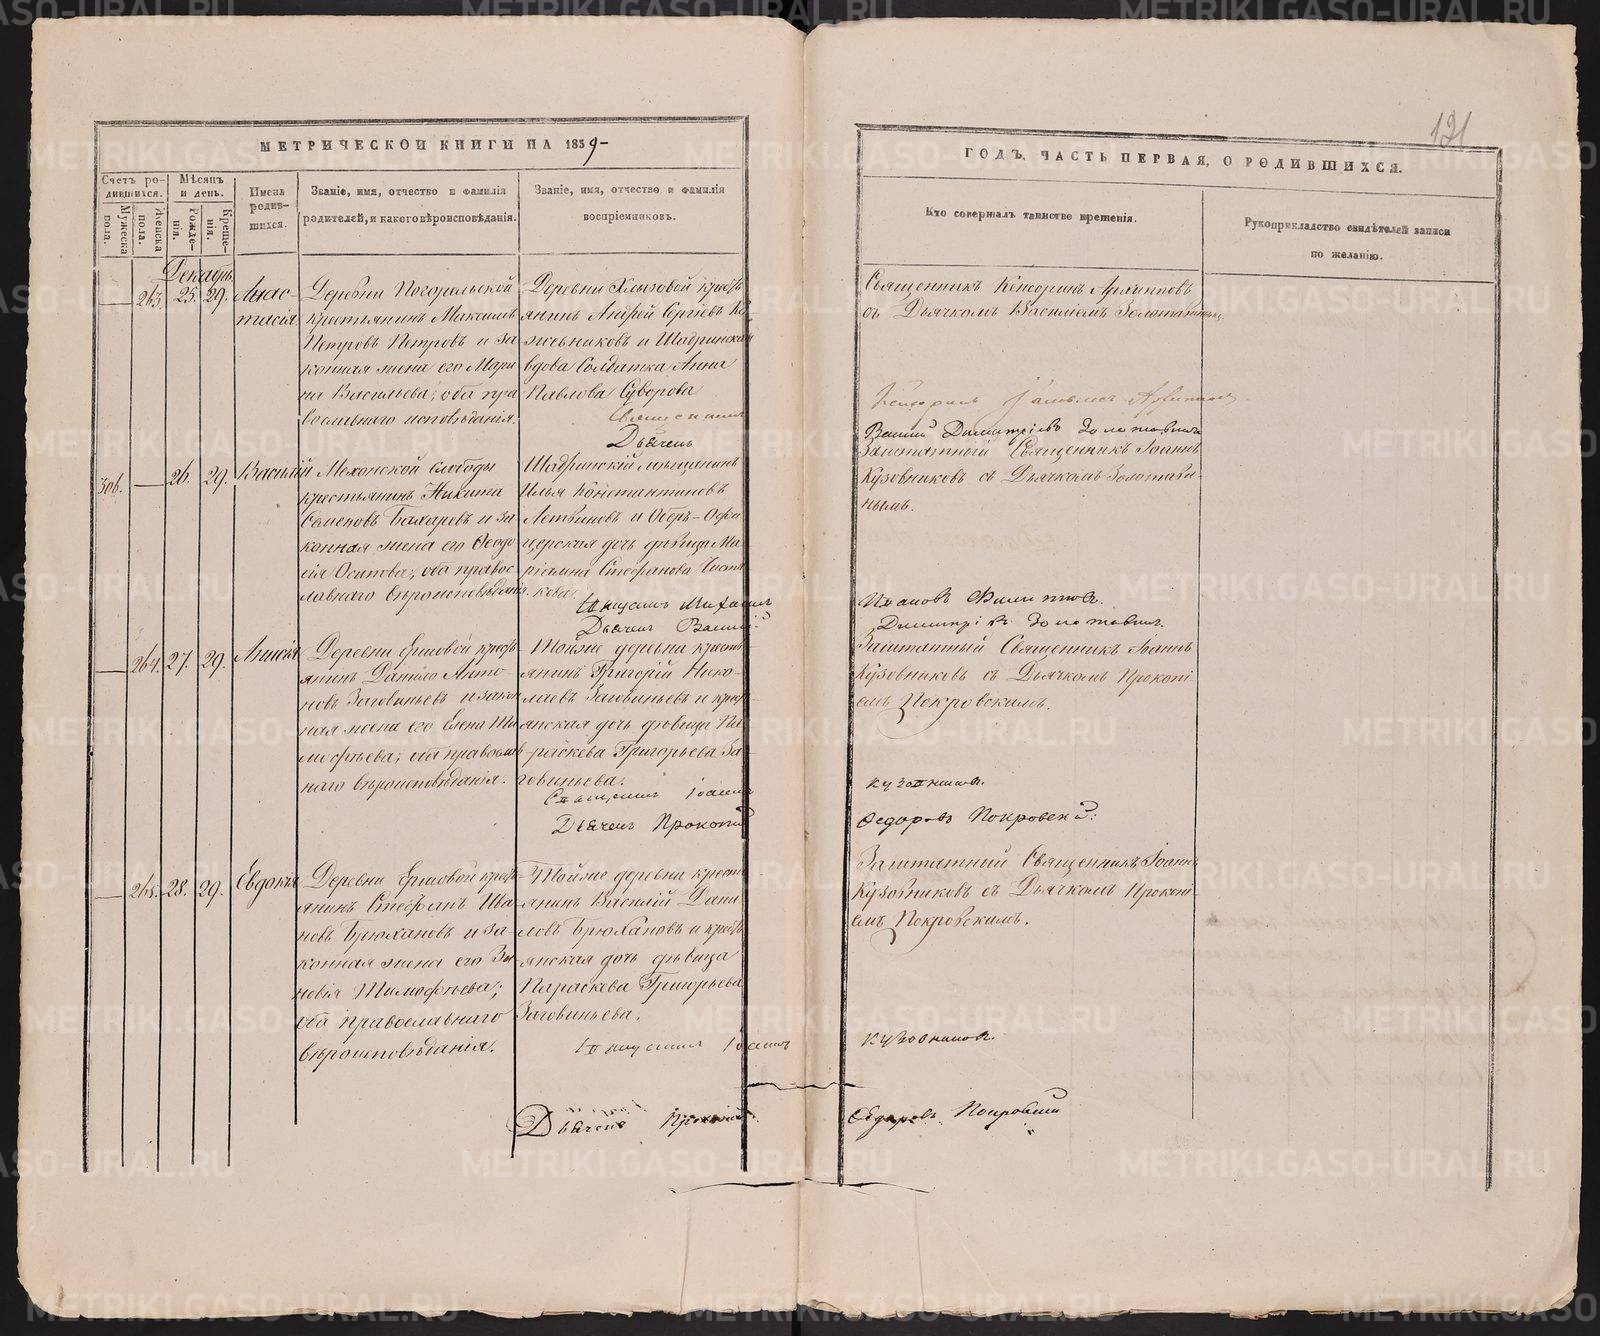 МЕТРИЧЕСКОЙ КНИГИ НА 1859
ГОДЪ, ЧАСТЬ ПЕРВАЯ, О РОДИВШИХСЯ.
121
Счетъ родившихся.
Мѣсяцъ и день.
Мужеска пола.
Женска пола.
Рожденія.
Крещенія.
Имена родившихся.
Званіе, имя, отчество и фамилія
родителей, и какого вѣроисповѣданія.
Званіе, имя, отчество и фамилія
воспріемниковъ.
Кто совершалъ таинство крещенія.
Рукоприкладство свидѣтелей записи
по желанію.
Декабрь
263. 25. 29. Анас-
тасія
Деревни Погорѣльской
крестьянинъ Максимъ
Петровъ Петровъ и за
конная жена его Мари
на Васильева; оба пра
вославнаго исповѣданія.
Деревни Хлызовой крестъ
янинъ Андрей Сергіевъ
и Шадринская
вдова Солдатка Анна
Павлова Суворова
Священникъ
Дьячекъ
Священникъ Кенсоринъ Архиповъ
съ Дьячкомъ Василіемъ Золотавинымъ
Димитріевъ Золотавинъ
306. — 26. 29. Василій
Мехонской слободы
крестьянинъ Никита
Семеновъ Бахаревъ и за
конная жена его Ѳеодо
сія Осипова; оба правос
лавнаго вѣроисповѣданія.
Шадринскій мѣщанинъ
Илья Константиновъ
Летвиновъ и Оберъ-Офи
церская дочь дѣвица Ма
ріамна Стефанова
Дьячекъ Василій
Заштатный Священникъ Іоаннъ
Кузовниковъ съ Дьячкомъ Золотави-
нымъ.
Димитріевъ Золотавинъ.
264. 27. 29. Анисія
Деревни Ершовой крестъ
янинъ Данило Анто
новъ Заговиньевъ и закон
ная жена его Елена Ти
моѳеева; оба православ
наго вѣроисповѣданія.
Тойже деревни кресть
янинъ Григорій Нико-
лаевъ Заговиньевъ и крест-
янская дочь дѣвица Па
раскева Григорьева За-
говиньева.
Священникъ Іоаннъ
Дьячекъ Прокопій
Заштатный Священникъ Іоаннъ
Кузовниковъ съ Дьячкомъ Прокопі-
емъ Покровскимъ.
Кузовниковъ.
Ѳедоровъ Покровскій.
265. 28. 29. Евдокія
Деревни Ершовой крест
янинъ Стефанъ Ива
новъ Брюхановъ и за-
конная жена его Зи
новія Тимофѣева;
оба православнаго
вѣроисповѣданія.
Тойже деревни кресть
янинъ Василій Дани
ловъ Брюхановъ и крестъ
янская дочь дѣвица
Параскева Григорьева
Заговиньева.
Священникъ Іоаннъ
Дьячекъ Прокопій
Заштатный Священникъ Іоаннъ
Кузовниковъ съ Дьячкомъ Прокопі-
емъ Покровскимъ.
Кузовниковъ.
Ѳедоровъ Покровскій
METRIKI.GASO-URAL.RU